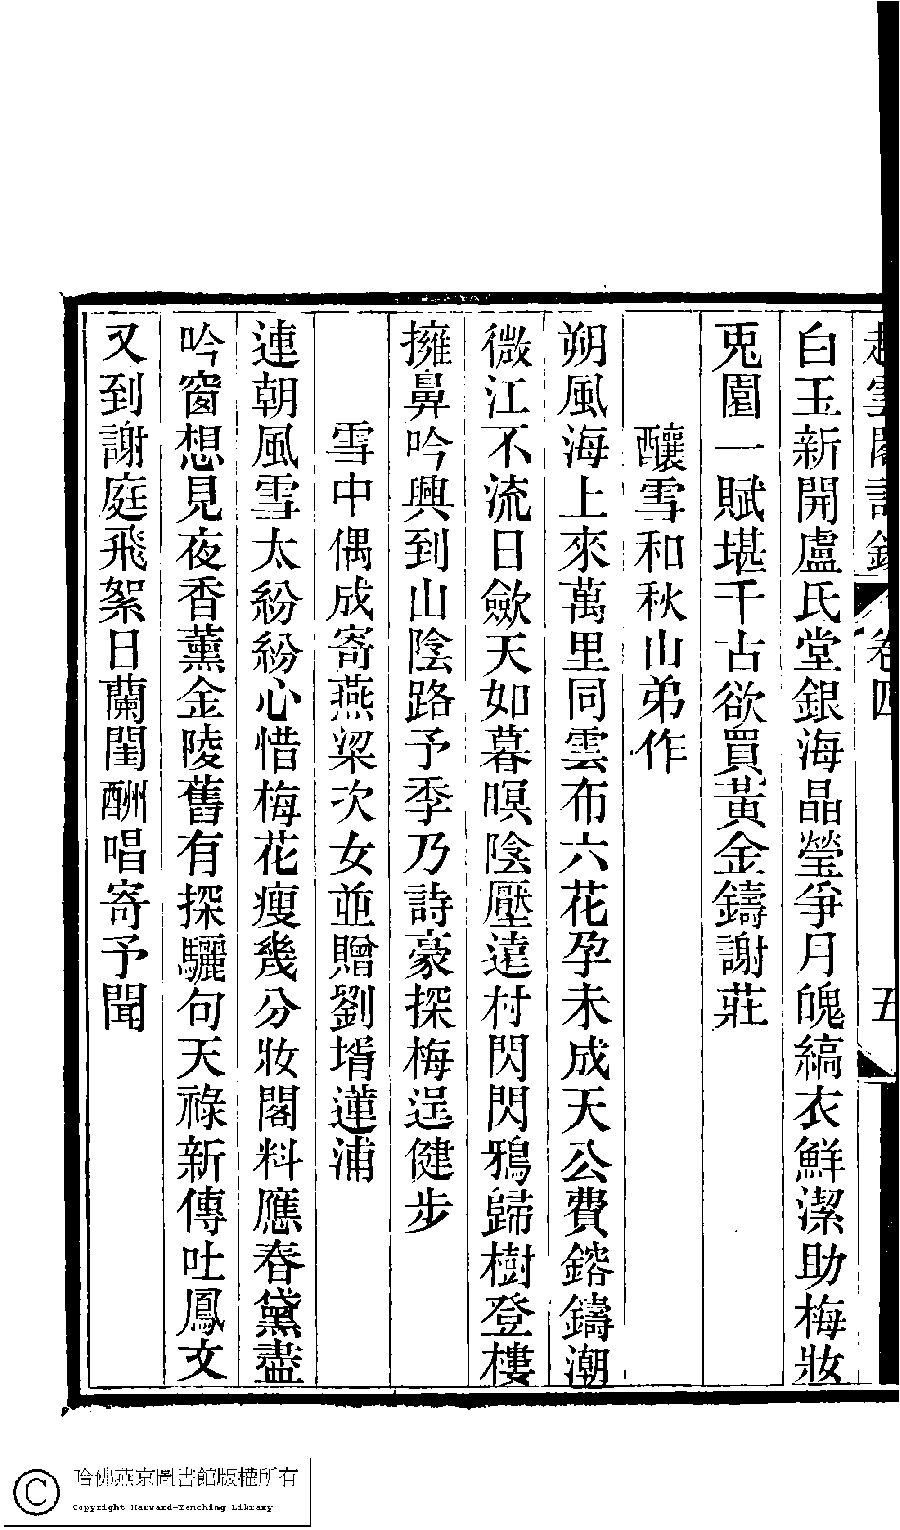 卷四
五
白玉新開盧氏堂銀海晶瑩爭月魄縞衣鮮潔助梅妝
兎園一賦堪千古欲買黃金鑄謝莊
釀雪和秋山弟作
朔風海上來萬里同雲布六花孕未成天公費鎔鑄潮
微江不流日歛天如暮暝陰壓遠村閃閃鴉歸樹登樓
擁鼻吟興到山陰路予季乃詩豪探梅逞健步
雪中偶成寄燕梁次女並贈劉壻蓮浦
連朝風雪太紛紛心惜梅花瘦幾分妝閣料應春黛盡
吟窗想見夜香薰金陵舊有探驪句天祿新傳吐鳳文
又到謝庭飛絮日蘭閨酬唱寄予聞
哈佛燕京圖書館版權所有
Copyright Harvard-Yenching Library